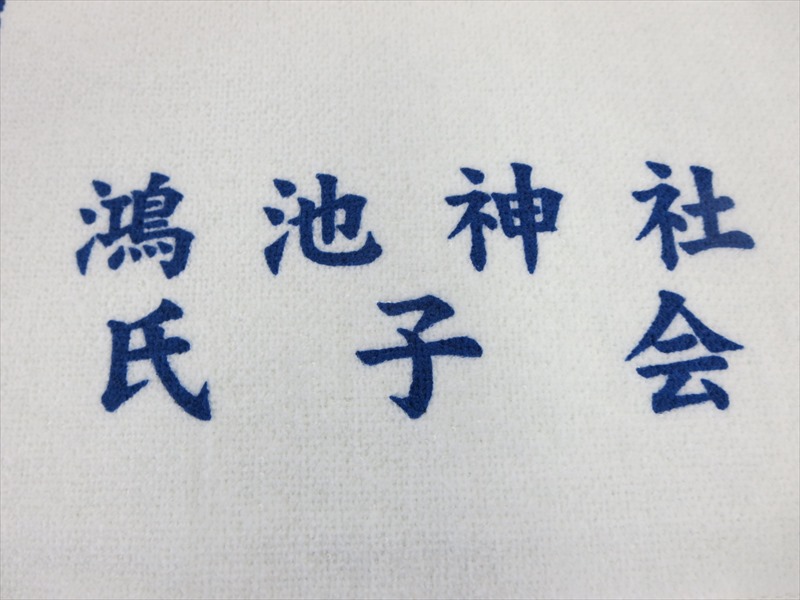 鴻池神社
氏子会